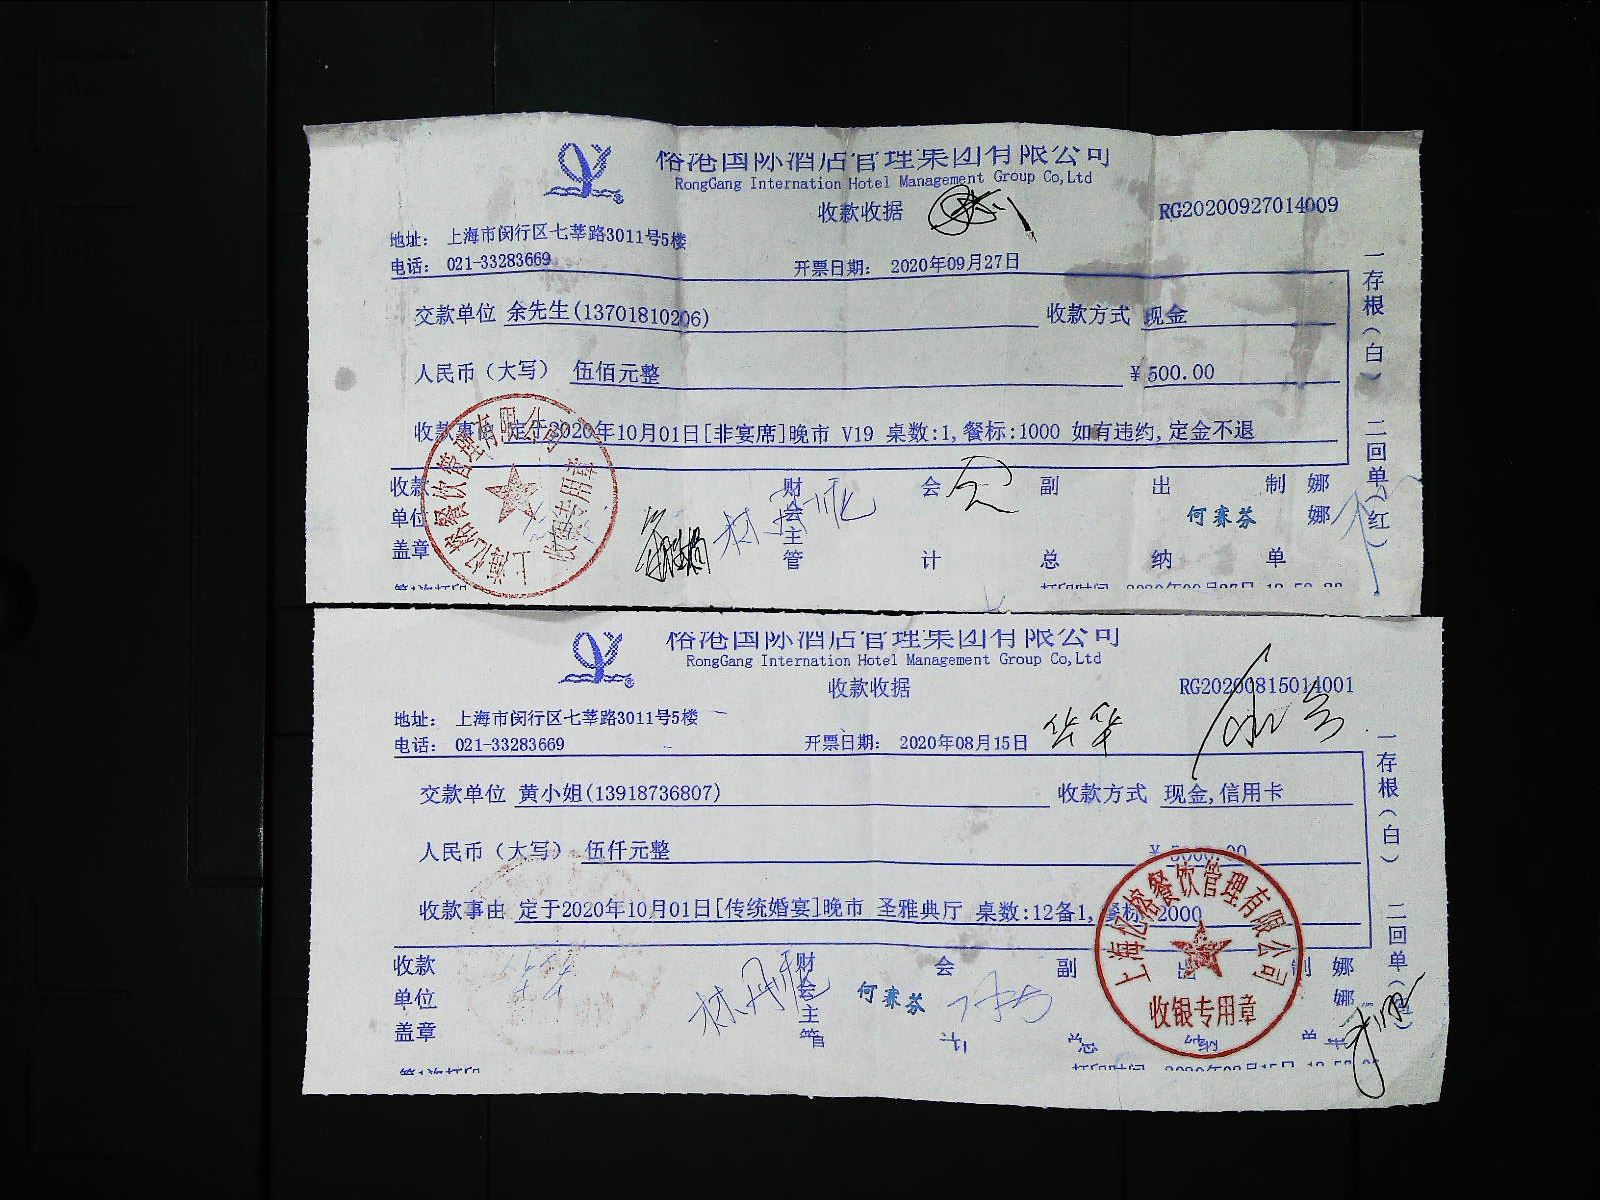 俗港国际酒店管理集团有限公司
RongGang Internation Hotel Management Group Co,Ltd
收款收据
RG20200927014009
地址： 上海市闵行区七莘路3011号5楼
电话： 021-33283669
开票日期： 2020年09月27日
交款单位 余先生(13701810206) 收款方式 现金
人民币（大写） 伍佰元整 ¥500.00
收款事由 定于2020年10月01日[非宴席]晚市 V19 桌数:1,餐标:1000 如有违约,定金不退
收款单位盖章
财会主管
会计
副总
出纳
何赛芬
制单
娜娜
一存根（白） 二回单（红）
上海亿榕餐饮管理有限公司
收银专用章
俗港国际酒店管理集团有限公司
RongGang Internation Hotel Management Group Co,Ltd
收款收据
RG20200815014001
地址： 上海市闵行区七莘路3011号5楼
电话： 021-33283669
开票日期： 2020年08月15日
交款单位 黄小姐(13918736807) 收款方式 现金,信用卡
人民币（大写） 伍仟元整 ¥5000.00
收款事由 定于2020年10月01日[传统婚宴]晚市 圣雅典厅 桌数:12备1,餐标:2000
收款单位盖章
财会主管
何赛芬
会计
副总
出纳
制单
娜娜
一存根（白） 二回单
上海亿榕餐饮管理有限公司
收银专用章